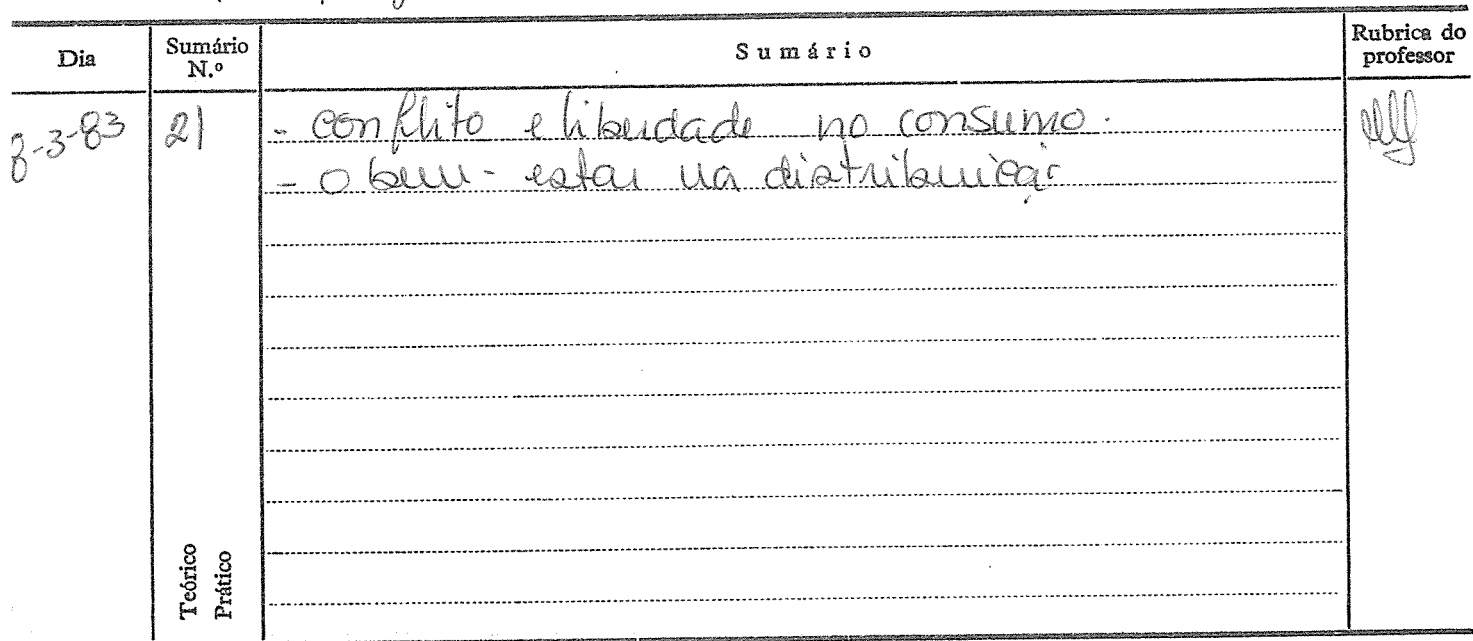 Dia
Sumário N.º
Sumário
Rubrica do professor
8-3-83
21
- conflito e liberdade no consumo.
- O bem-estar na distribuição
Teórico
Prático